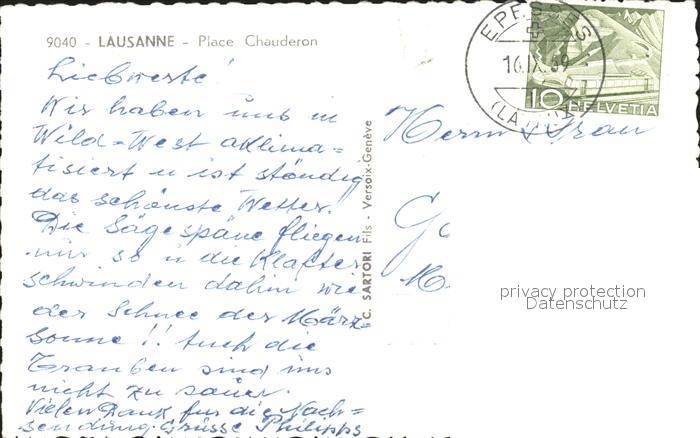 9040 - LAUSANNE - Place Chauderon
Liebwerte!
Wir haben uns in
Wild=West aklima=
tisiert u ist ständig
das schönste Wetter.
Die Sägespäne fliegen
nur so u die Klafter
schwinden dahin wie
der Schnee der März=
sonne!! Auch die
Trauben sind uns
nicht zu sauer.
Vielen Dank für die Nach=
sendung. Grüsse Philipps
C. SARTORI Fils - Versoix-Genève
EPESSES
10.IX.59
10 HELVETIA
Herrn & Frau
privacy protection
Datenschutz